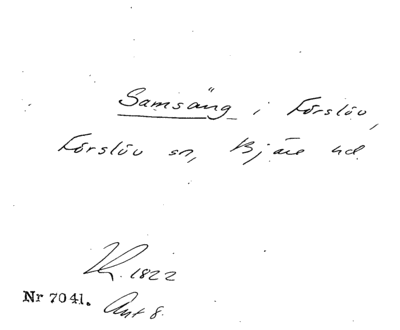 Samsäng i Förslöv,
Förslöv sn, Bjäre hd.
1822
Nr 7041. Ant 8.